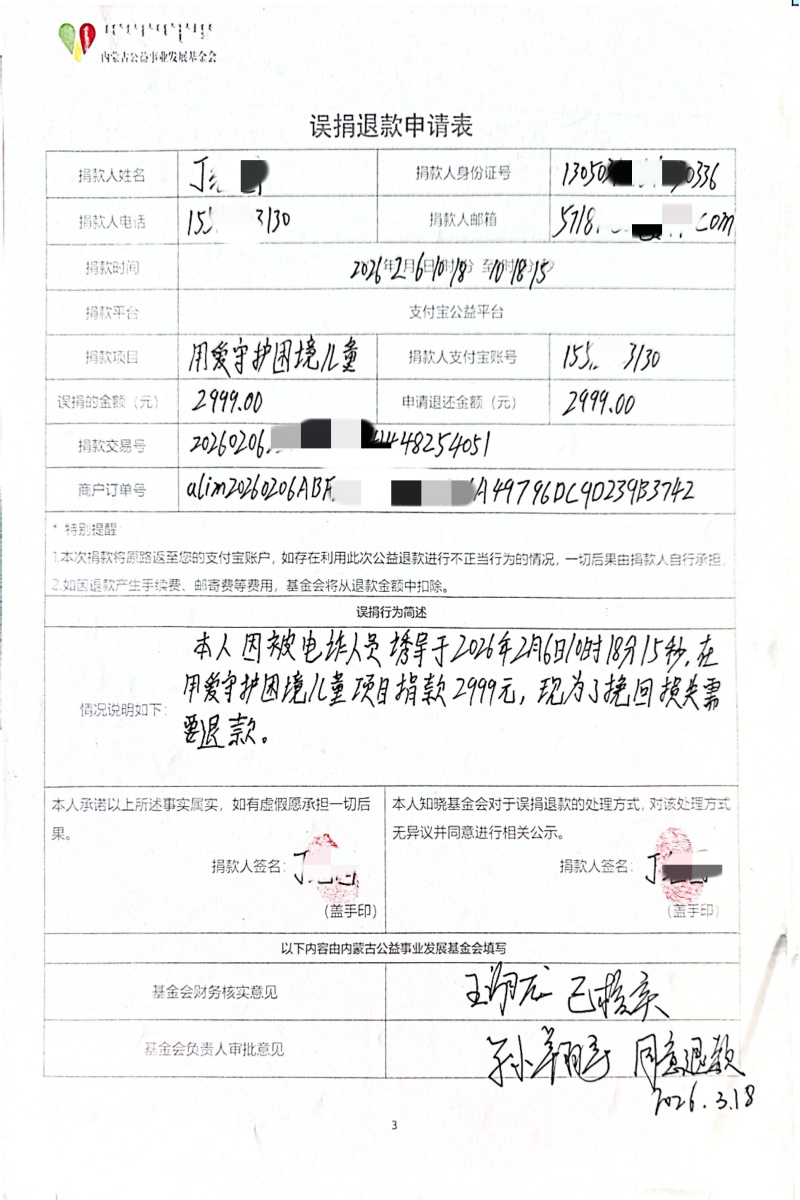 内蒙古公益事业发展基金会
误捐退款申请表
捐款人姓名 丁 捐款人身份证号 13050 0336
捐款人电话 155 3130 捐款人邮箱 5718. .com
捐款时间 2026年2月6日10时18分 至 10时18分15秒
捐款平台 支付宝公益平台
捐款项目 用爱守护困境儿童 捐款人支付宝账号 155 3130
误捐的金额（元） 2999.00 申请退还金额（元） 2999.00
捐款交易号 20260206 448254051
商户订单号 alim20260206ABF A49796DC9D239B3742
* 特别提醒
1.本次捐款将原路返至您的支付宝账户，如存在利用此次公益退款进行不正当行为的情况，一切后果由捐款人自行承担。
2.如因退款产生手续费、邮寄费等费用，基金会将从退款金额中扣除。
误捐行为简述
情况说明如下：
本人因被电诈人员诱导于2026年2月6日10时18分15秒,在
用爱守护困境儿童项目捐款2999元，现为了挽回损失需
要退款。
本人承诺以上所述事实属实，如有虚假愿承担一切后
果。
捐款人签名：丁
（盖手印）
本人知晓基金会对于误捐退款的处理方式，对该处理方式
无异议并同意进行相关公示。
捐款人签名：丁
（盖手印）
以下内容由内蒙古公益事业发展基金会填写
基金会财务核实意见 已核实
基金会负责人审批意见 同意退款
2026.3.18
3